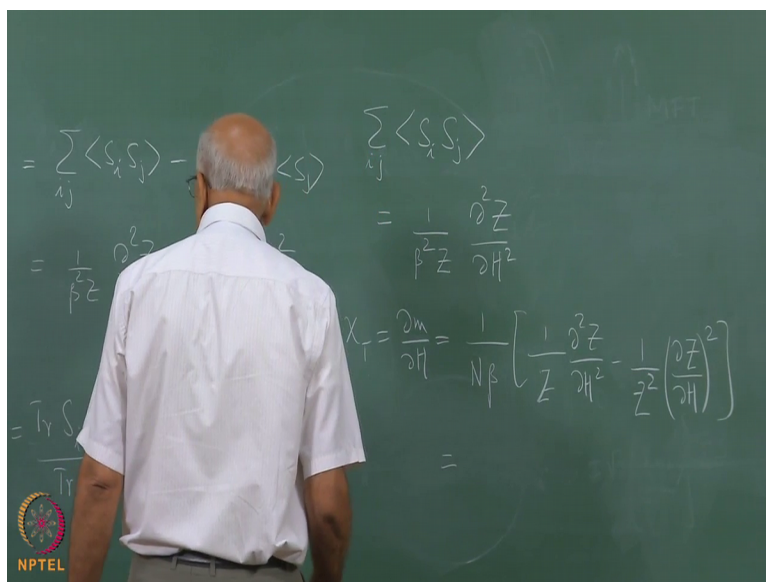 = ∑_{ij} ⟨S_i S_j⟩ − ⟨S_j⟩
= 1/(β²Z) ∂²Z
= Tr S
Tr
∑_{ij} ⟨S_i S_j⟩
= 1/(β²Z) ∂²Z/∂H²
χ_T = ∂m/∂H = 1/(Nβ) [ 1/Z ∂²Z/∂H² − 1/Z² (∂Z/∂H)² ]
=
MFT
NPTEL